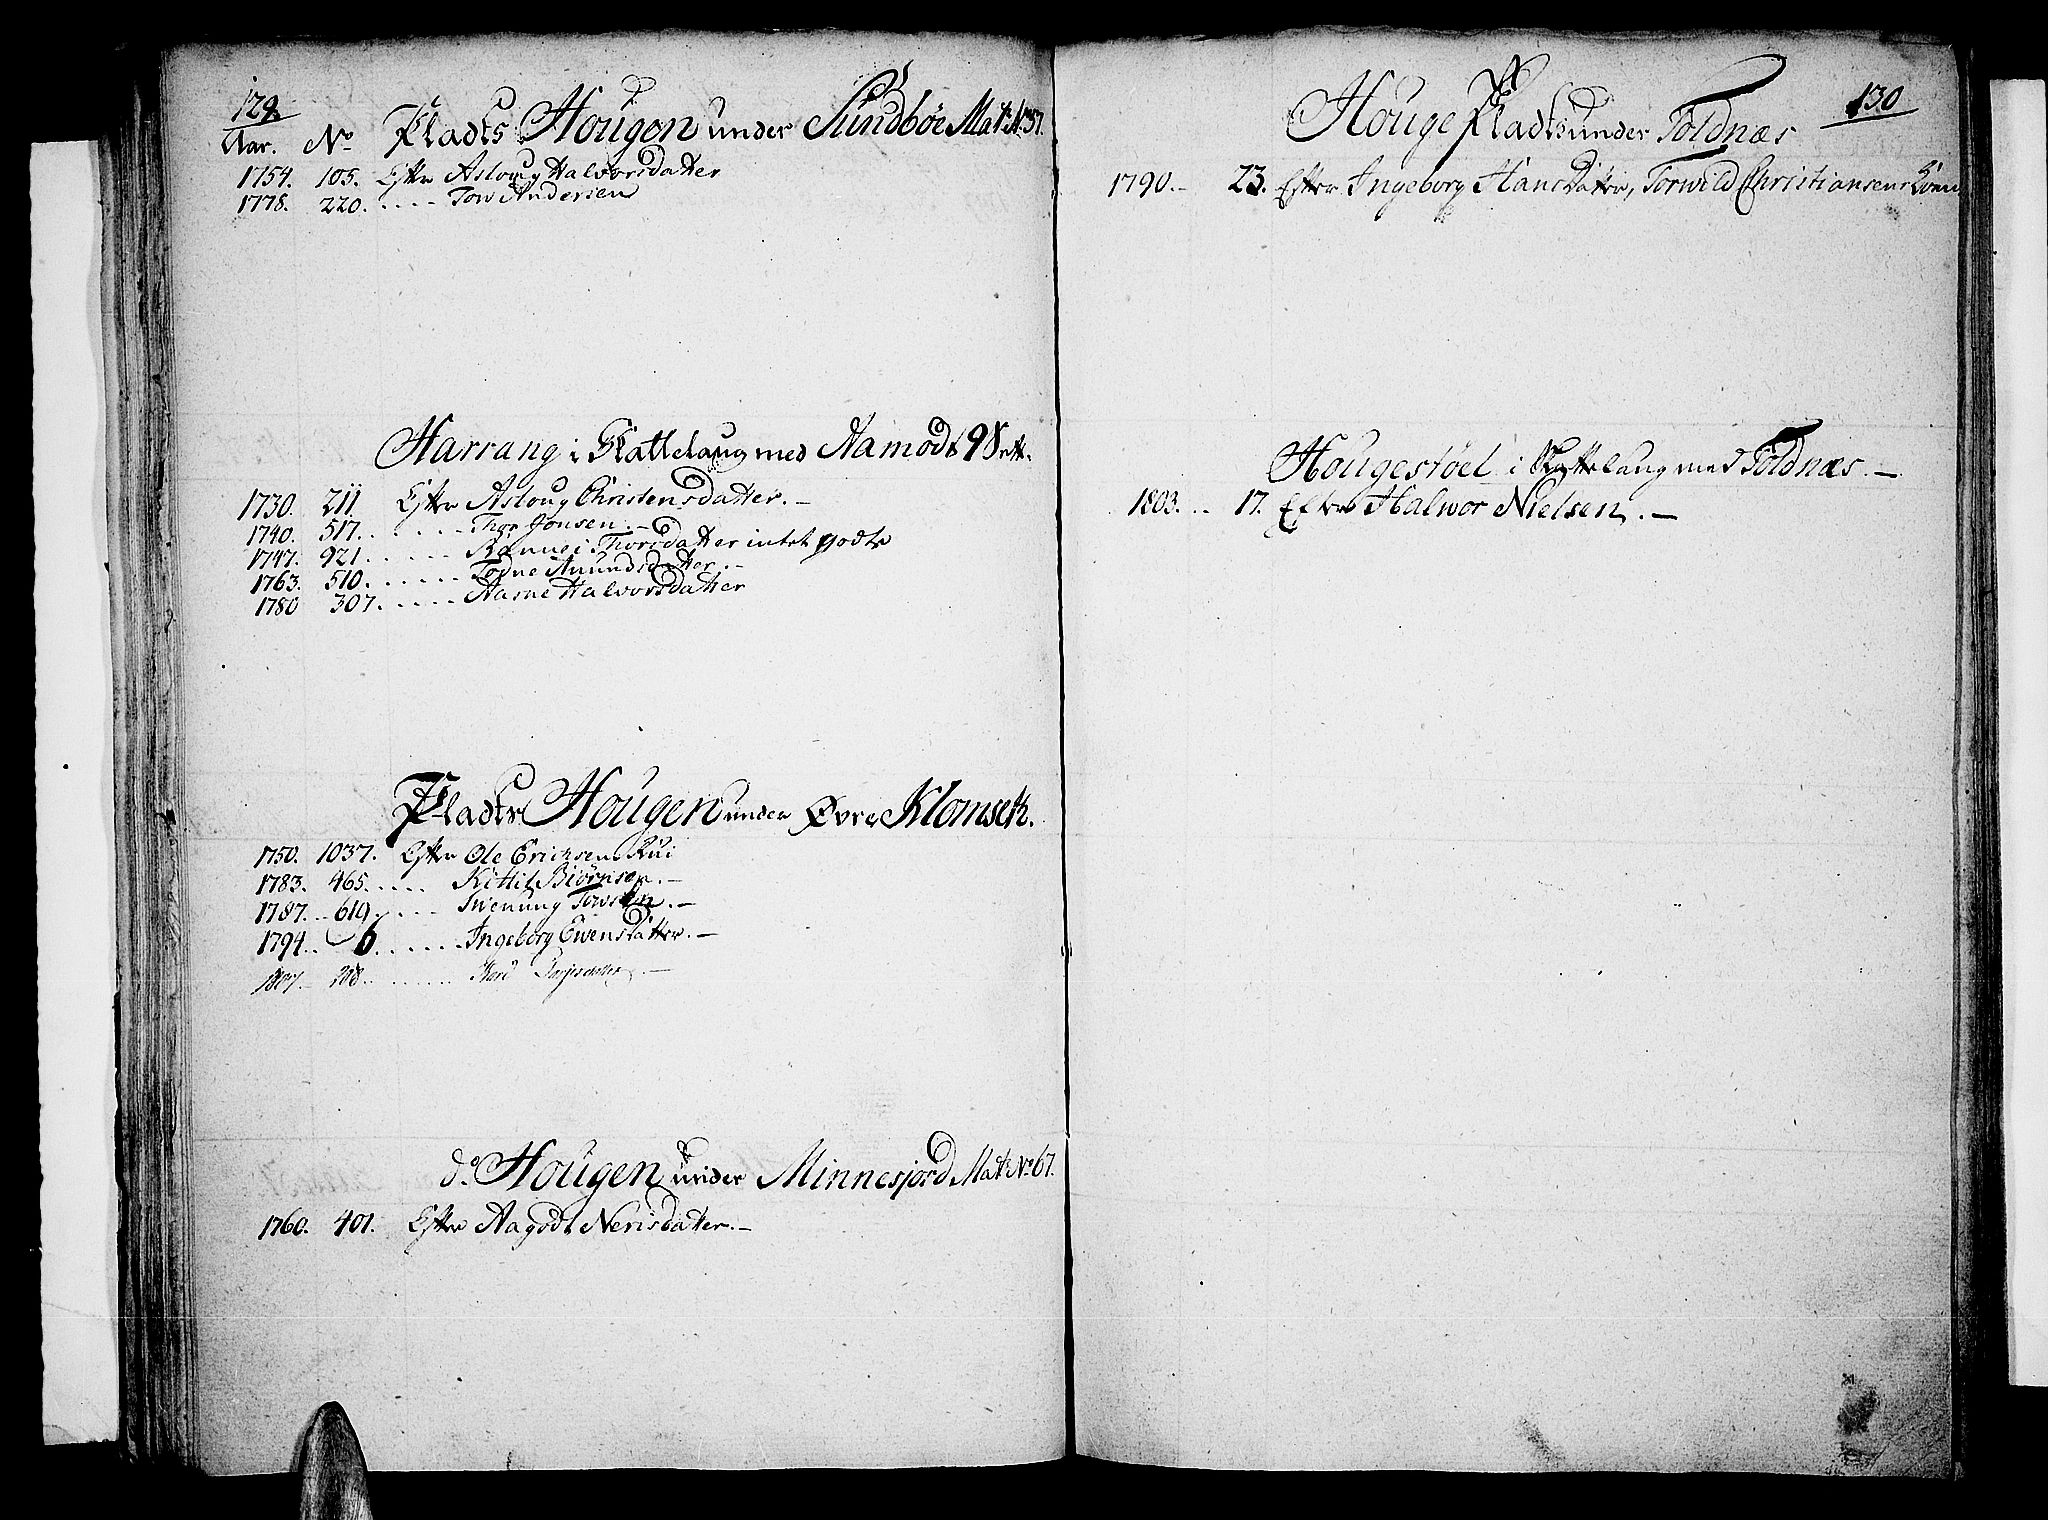 129
Aar. No Pladts Hougen under Sundbøe Mat: No 57.
1754. 105. Efter Asloug Halvorsdatter
1778. 220. .... Tow Andersen
Harrang i Skattelaug med Aamodt 98
1730. 211 Efter Asloug Christensdatter.—
1740. 517. ..... Thor Jonsen.—
1747. 921. ..... Thorsdatter intet godts
1763. 510. ...... Torne Amundsdatter.—
1780 307. ..... Aasne Halvorsdatter
Pladts Hougen under Øvre Klomseth.
1750. 1037. Efter Ole Erichsen Rui
1783. 465. .... Kittil Biørnsen.—
1787. 619. .... Swenung Towsen.—
1794. 6. ..... Ingeborg Ewensdatter.—
1807.— 208. ...... datter.—
do Hougen under Minnesjord Mat: No 67.
1760. 401. Efter Aagodt Nerisdatter.—
130
Houge Pladts under Toldnæs
1790.— 23. Efter Ingeborg Hansdatter, Torwild Christiansens
Hougestøel i Skattelaug med Toldnæs.—
1803. .. 17. Efter Halwor Nielsen.—